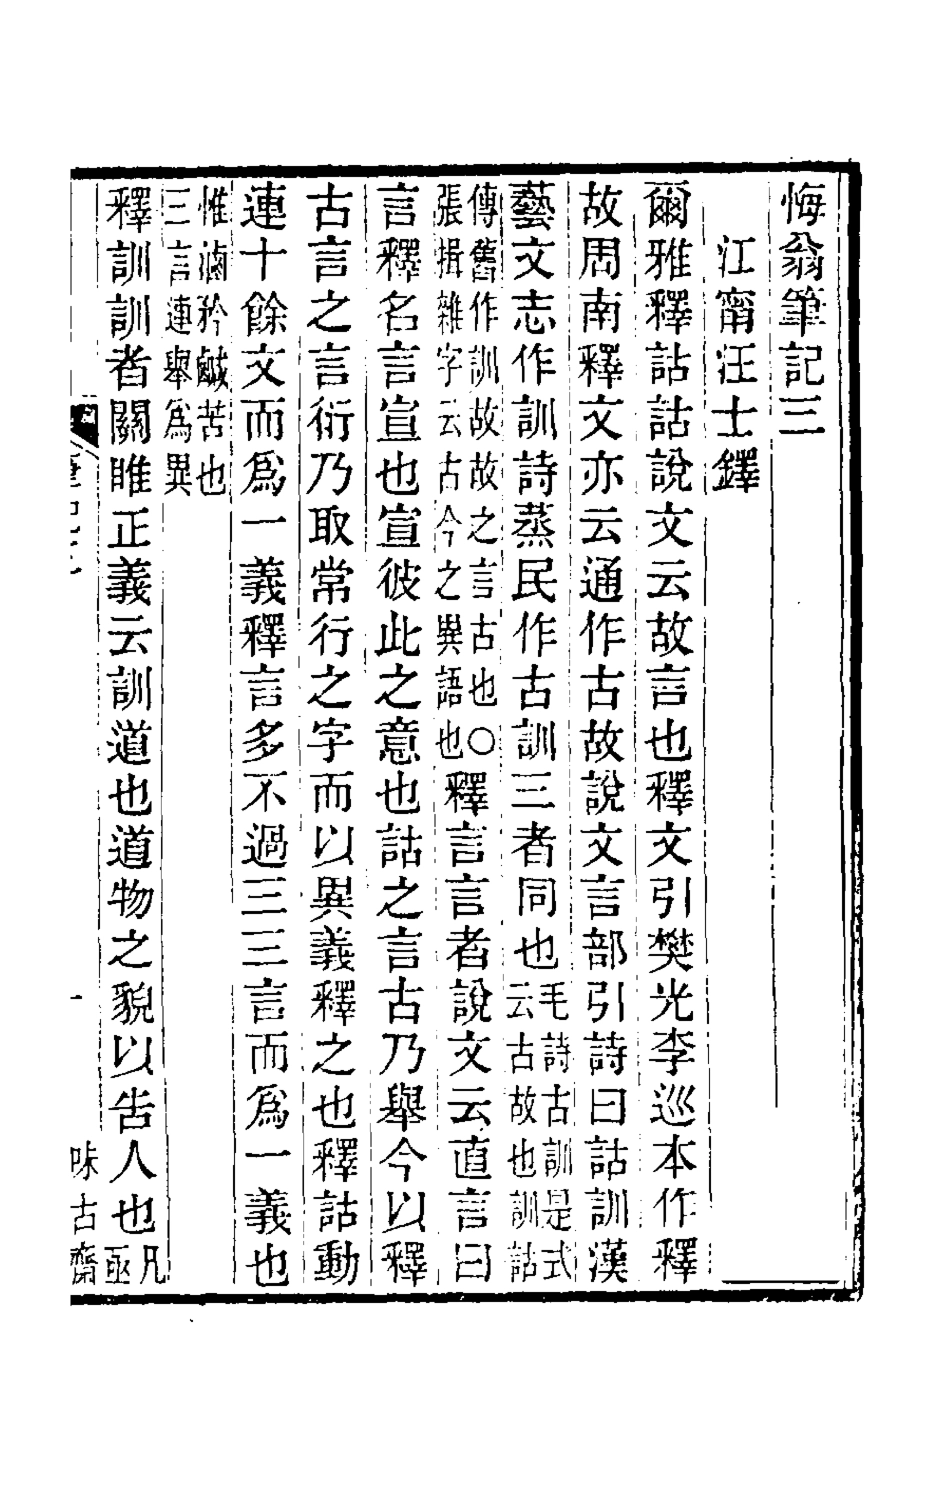 悔翁筆記三
江甯汪士鐸
爾雅釋詁詁說文云故言也釋文引樊光李巡本作釋
故周南釋文亦云通作古故說文言部引詩曰詁訓漢
藝文志作訓詩蒸民作古訓三者同也毛詩古訓是式云古故也訓詁
傳舊作訓故故之言古也○張揖雜字云古今之異語也釋言言者說文云直言曰
言釋名言宣也宣彼此之意也詁之言古乃舉今以釋
古言之言衍乃取常行之字而以異義釋之也釋詁動
連十餘文而爲一義釋言多不過三三言而爲一義也
惟滷矜鹹苦也三言連舉爲異
釋訓訓者關雎正義云訓道也道物之貌以告人也凡亟
味古齋